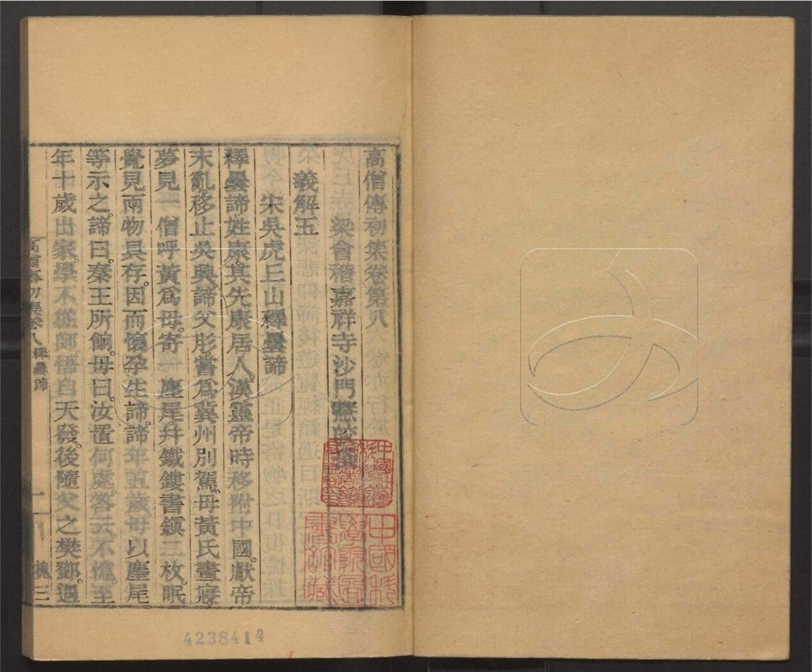 高僧傳初集卷第八
梁會稽嘉祥寺沙門慧皎撰
義解五
宋吳虎丘山釋曇諦
釋曇諦。姓康。其先康居人。漢靈帝時移附中國。獻帝
末亂。移止吳興。諦父肜。嘗爲冀州別駕。母黃氏晝寢。
夢見一僧呼黃爲母。寄一麈尾。幷鐵鏤書鎭二枚。眠
覺見兩物具存。因而懷孕生諦。諦年五歲。母以麈尾
等示之。諦曰。秦王所餉。母曰。汝置何處。答云。不憶。至
年十歲出家。學不從師。悟自天發。後隨父之樊鄧。遇
高僧傳初集卷八 釋曇諦
一
槐三
4238414